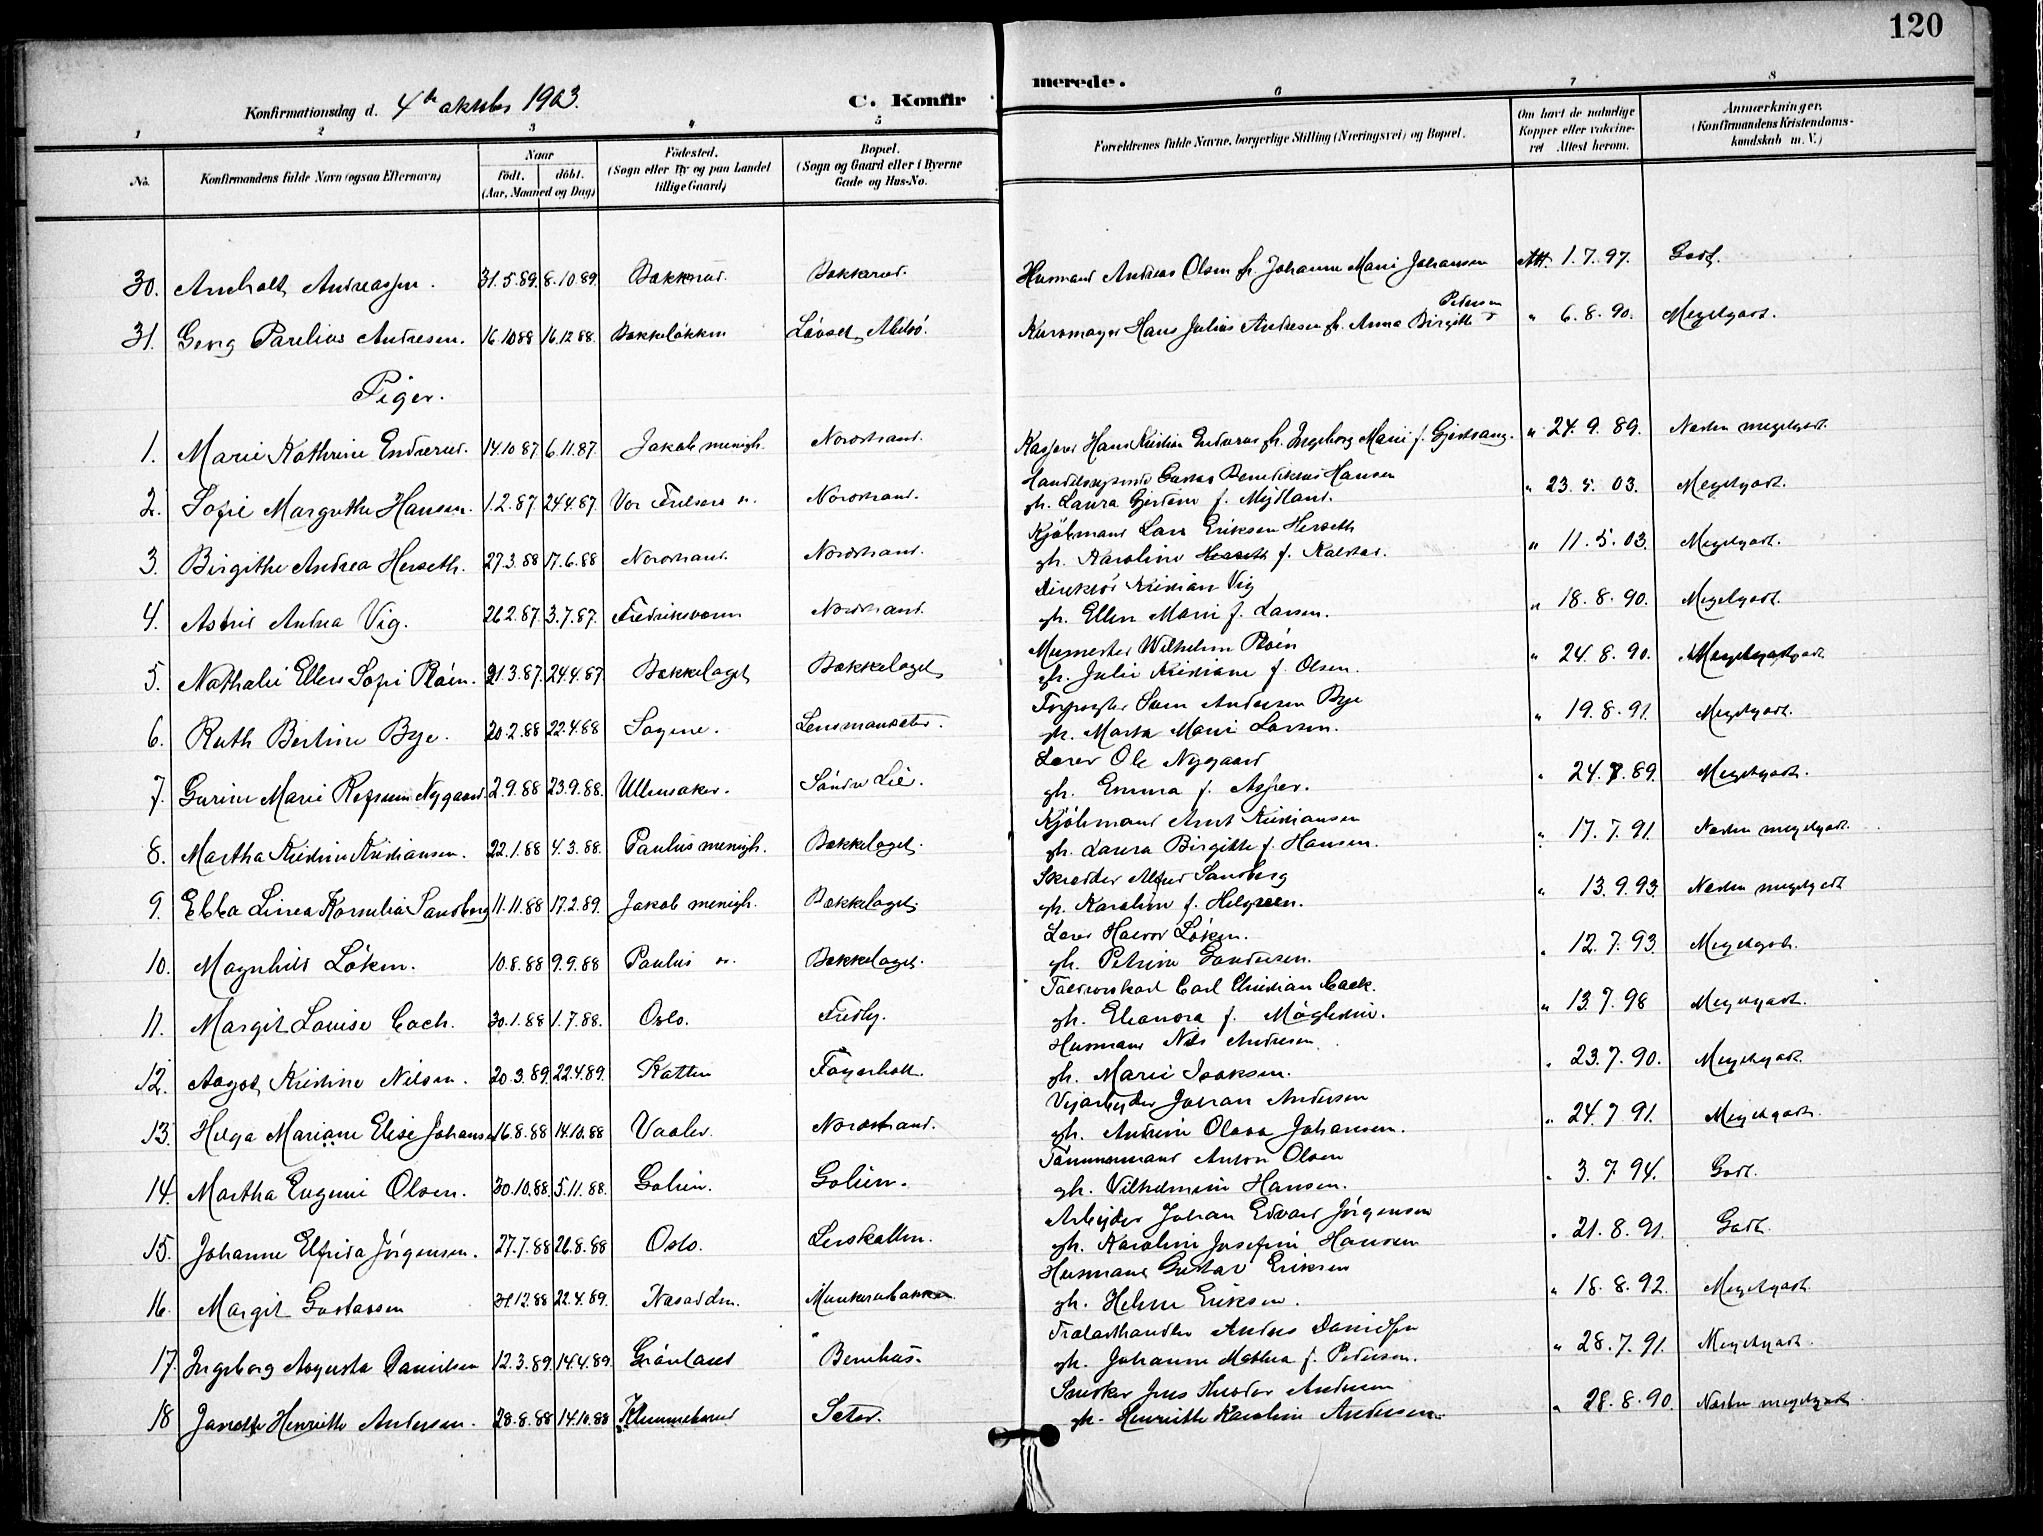 120
Konfirmationsdag d. 4de oktober 1903.
C. Konfirmerede.
1 2 3 4 5 6 7 8
No. Konfirmandens fulde Navn (ogsaa Efternavn) Naar født. døbt. (Aar, Maaned og Dag) Fødested. (Sogn eller By og paa Landet tillige Gaard) Bopæl. (Sogn og Gaard eller i Byerne Gade og Hus-No. Forældrenes fulde Navne, borgerlige Stilling (Næringsvei) og Bopæl. Om havt de naturlige Kopper eller vakcineret Attest herom. Anmærkninger. (Konfirmandens Kristendomskundskab m. V.)
30. Arnholt Andreassen. 31.5.89. 8.10.89. Bakkerud. Bakkerud. Husmand Andreas Olsen h. Johanne Marie Johansen Att. 1.7.97. Godt.
31. Georg Parelius Andresen. 16.10.88 16.12.88. Bækkeløkken Abilsø. Hans Julius Andresen h. Anna Birgitte Petersen " 6.8.90. Megetgodt.
Piger.
1. Marie Kathrine Enderud. 14.10.87 6.11.87. Jakob menigh. Nordstrand. Kasserer Hans Kristian Enderud gh. Ingeborg Marie f. " 24.9.89. Næsten megetgodt.
2. Sofie Margrethe Hansen. 1.2.87 24.4.87. Vor Frelsers m. Nordstrand. Gustav Benediktus Hansen
gh. Laura f. Mydland. " 23.5.03. Megetgodt.
3. Birgithe Andrea Herseth. 27.3.88 17.6.88 Nordstrand. Nordstrand. Kjøbmand Lars Eriksen Herseth
gh. Karoline f. Kalstad. " 11.5.03. Megetgodt.
4. Astrid Andrea Vig. 26.2.87. 3.7.87. Fredriksværn Nordstrand. Direktør Kristian Vig
gh. Ellen Marie f. Larsen. " 18.8.90. Megetgodt.
5. Nathalie Ellen Sofie Pløen. 21.3.87. 24.4.87 Bækkelaget Bækkelaget Murmester Wilhelm Pløen
gh. Julie Kristiane f. Olsen. " 24.8.90. Megetgodt
6. Ruth Bertine Bye. 20.2.88 22.4.88 Sagene. Lensmansæter. Andersen Bye
gh. Marta Marie Larsen. " 19.8.91. Megetgodt.
7. Gurine Marie Refsum Nygaard. 2.9.88 23.9.88. Ullensaker. Søndre Lie. Lærer Ole Nygaard
gh. Emma f. Asper. " 24.8.89. Megetgodt.
8. Martha Kristine Kristiansen. 22.1.88 4.3.88. Paulus menigh. Bækkelaget. Kjøbmand Arnt Kristiansen
gh. Laura Birgitte f. Hansen. " 17.7.91. Næsten megetgodt.
9. Ebba Linea Kornelia Sandberg 11.11.88 17.2.89. Jakob menigh. Bækkelaget. Skrædder Alfred Sandberg
gh. Karoline f. Helgreen. " 13.9.93. Næsten megetgodt
10. Magnhild Løken. 10.8.88 9.9.88 Paulus m. Bækkelaget. Lærer Halvor Løken.
gh. Petrine Gundersen. " 12.7.93. Megetgodt.
11. Margit Louise Cock. 30.1.88 1.7.88. Oslo. Fredly. Carl Christian Cock.
gh. Eleonora f. " 13.7.98 Megetgodt.
12. Aagot Kristine Nilsen. 20.3.89 22.4.89. Katten Fagerholt. Husmand Nils Andresen
gh. Marie Isaksen. " 23.7.90. Megetgodt.
13. Helga Mariane Elise Johansen 16.8.88 14.10.88 Vaaler. Nordstrand. Vejarbeider Johan Andersen
gh. Andrine Olava Johansen. " 24.7.91. Megetgodt.
14. Martha Eugenie Olsen. 30.10.88. 5.11.88. Golien. Golien. Tømmermand Anton Olsen
gh. Vilhelmine Hansen. " 3.7.94. Godt.
15. Johanne Elfrida Jørgensen. 27.7.88 26.8.88 Oslo. Leirskallen. Arbejder Johan Edvard Jørgensen
gh. Karoline Josefine Hansen " 21.8.91. Godt.
16. Margit Gustavsen 31.12.88 22.4.89. Munkerubakken Husmand Gustav Eriksen
gh. Helene Eriksen. " 18.8.92. Megetgodt.
17. Ingeborg Augusta Danielsen 12.3.89. 14.4.89. Grønland Benehus. Trælasthandler Anders Danielsen
gh. Johanne Mathea f. Pedersen. " 28.7.91. Megetgodt.
18 Janette Henriette Andersen. 28.8.88 14.10.88 Klemmetsrud Seter. Snedker Jens Theodor Andersen
gh. Henriette Karoline Andersen. " 28.8.90. Næsten megetgodt.